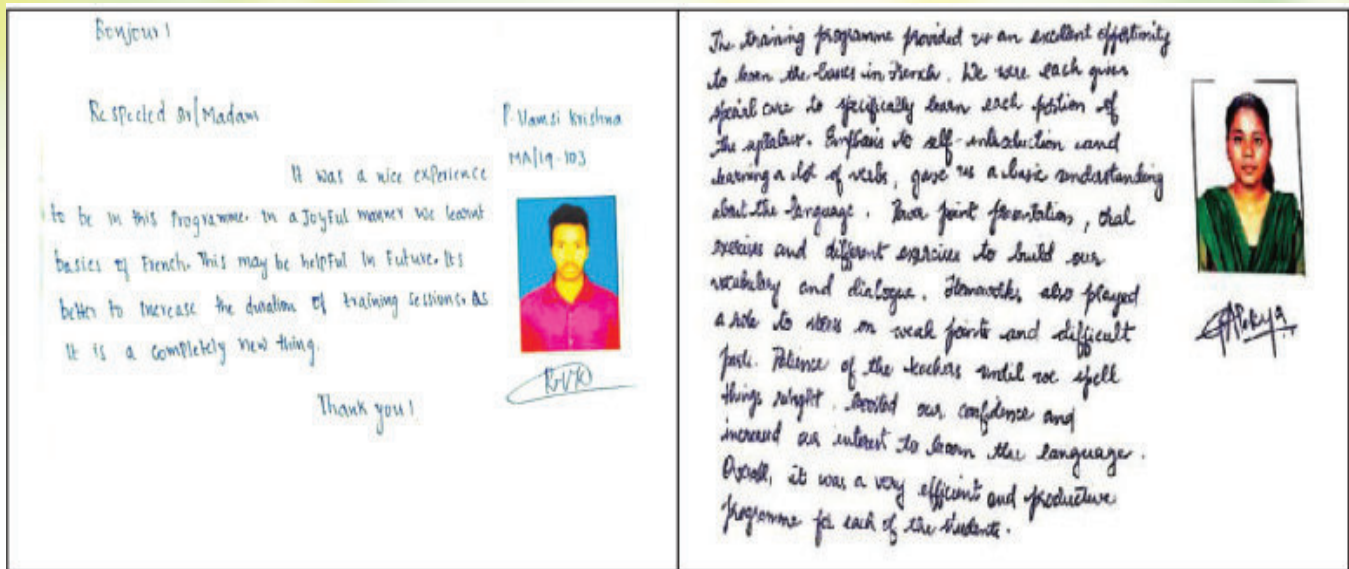 Bonjour!
Respected Sir/Madam
P. Vamsi Krishna
MA/19-103
It was a nice experience
to be in this Programme. In a Joyful manner we learnt
basics of French. This may be helpful In Future. Its
better to increase the duration of training sessions. as
It is a completely new thing.
Thank you!
The training programme provided us an excellent
to learn the basics in French. We were each given
special care to specifically learn each portion of
the syllabus. Emphasis to self-introduction and
learning a lot of verbs, gave us a basic understanding
about the language. Power point presentation, oral
exercises and different exercises to build our
vocabulary and dialogue. Homeworks, also played
a role to stress on weak points and difficult
parts. Patience of the teachers until we spell
things boosted our confidence and
increased our interest to learn the language.
Overall, it was a very efficient and productive
programme for each of the students.